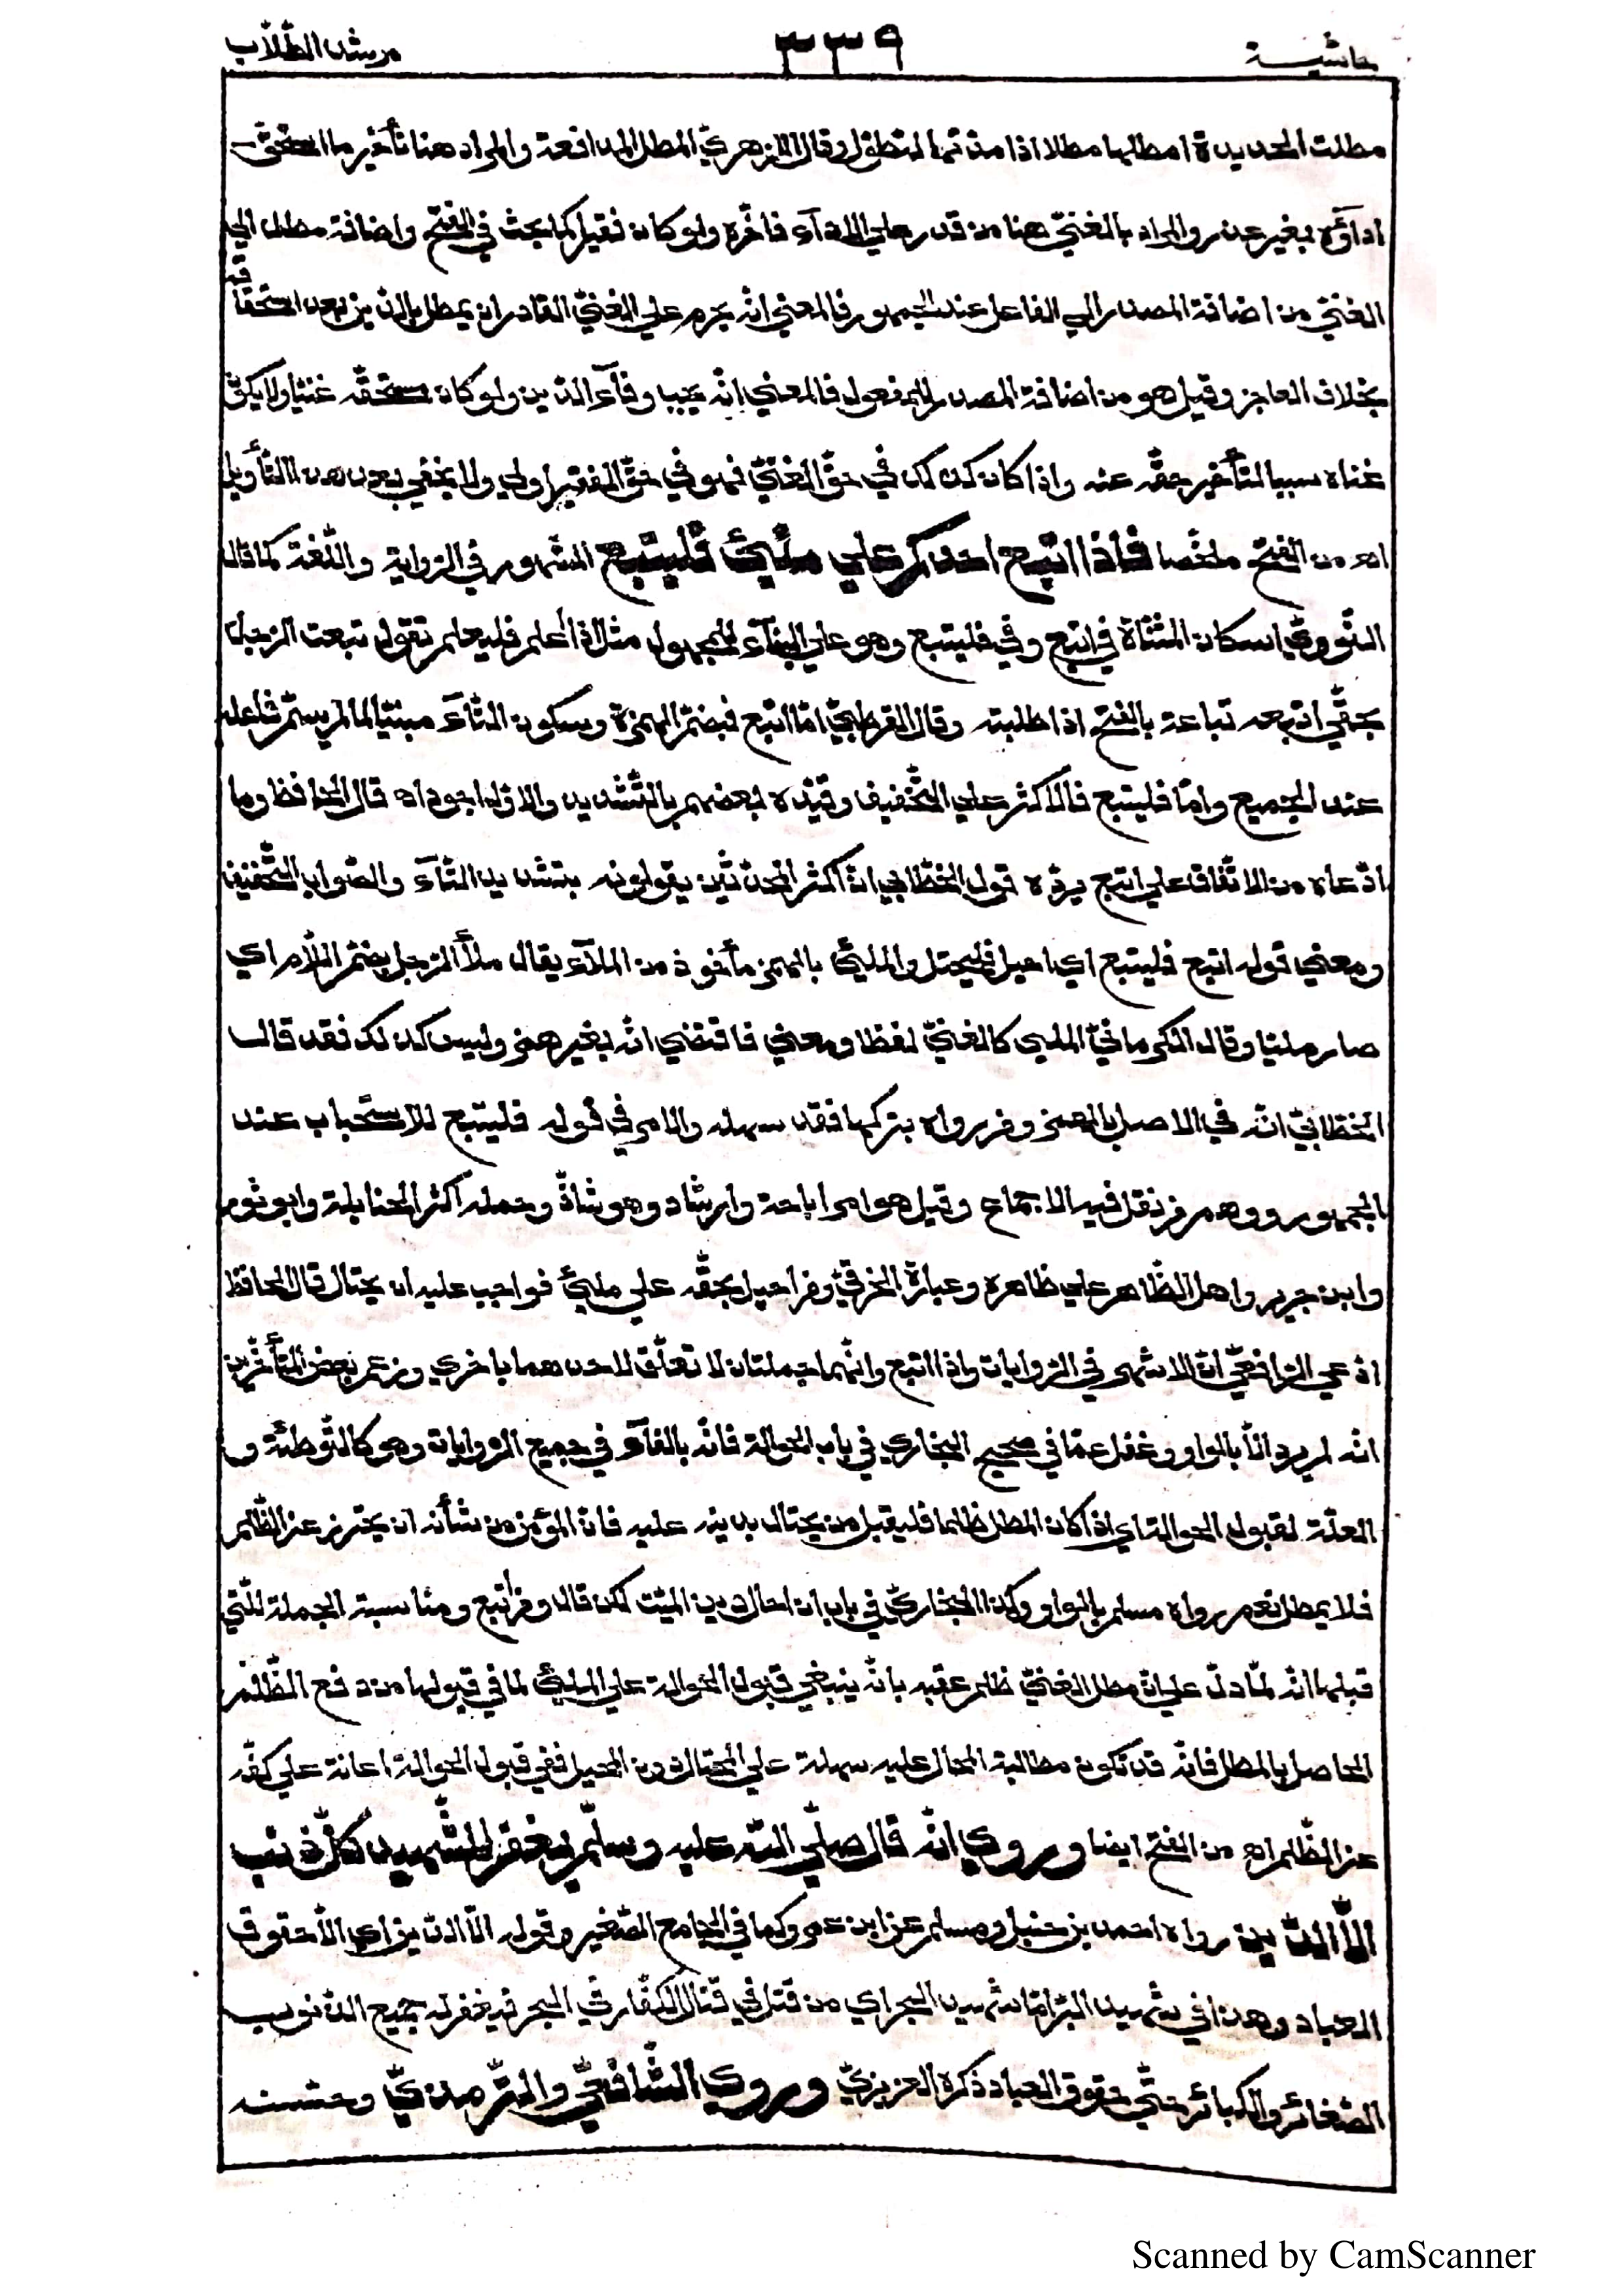 حاشية ٣٣٩ مرشد الطّلّاب
مطلت الحديدة امطلها مطلا اذا مددتها لتطول وقال الازهريّ المطل المدافعة والمراد هنا تأخير ما استحقّ
اداؤه بغير عذر والمراد بالغنيّ هنا من قدر علي الادآء فاخّره ولو كان فقيرا كما بحث في الفتح واضافة مطل الي
الغنيّ من اضافة المصدر الي الفاعل عند الجمهور فالمعني انّه يحرم علي الغنيّ القادر ان يمطل بالدّين بعد استحقاقه
بخلاف العاجز وقيل هو من اضافة المصدر للمفعول فالمعني انّه يجب وفآء الدّين ولو كان مستحقّه غنيّا ولا يكون
غناه سببا لتأخير حقّه عنه واذا كان كذلك في حقّ الغنيّ فهو في حقّ الفقير اولي ولا يخفي بعد هذا التّأويل
اه من الفتح ملخّصا فاذا اتبع احدكم علي مليّ فليتبع المشهور في الرّواية واللّغة كما قال
النّوويّ اسكان المثنّاة في اتبع وفي فليتبع وهو علي البنآء للمجهول مثل اذا اعلم فليعلم تقول تبعت الرّجل
بحقّي اتبعه تباعة بالفتح اذا طلبته وقال القرطبيّ امّا اتبع فبضمّ الهمزة وسكون التّآء مبنيّا لما لم يسمّ فاعله
عند الجميع وامّا فليتبع فالاكثر علي التّخفيف وقيّده بعضهم بالتّشديد والاوّل اجود اه قال الحافظ وما
ادّعاه من الاتّفاق علي اتبع يردّه قول الخطّابي انّ اكثر المحدّثين يقولونه بتشديد التّآء والصّواب التّخفيف
ومعني قوله اتبع فليتبع اي احيل فليحتل والمليّ بالهمز مأخوذ من الملآء يقال ملأ الرّجل بضمّ اللّام اي
صار مليّا وقال الكرمانيّ الملي كالغنيّ لفظا ومعني فاقتضي انّه بغير همز وليس كذلك فقد قال
الخطّابيّ انّه في الاصل بالهمز ومن رواه بتركها فقد سهله والامر في قوله فليتبع للاستحباب عند
الجمهور ووهم من نقل فيه الاجماع وقيل هو امر اباحة وارشاد وهو شاذّ وحمله اكثر الحنابلة وابو ثور
وابن جرير واهل الظّاهر علي ظاهره وعبارة الخرقيّ ومن احيل بحقّه علي مليّ فواجب عليه ان يحتال قال الحافظ
ادّعي الرّافعيّ انّ الاشهر في الرّوايات واذا اتبع وانّهما جملتان لا تعلّق لاحدهما باخري وزعم بعض المتأخّرين
انّه لم يرد الّا بالواو وغفل عمّا في صحيح البخاري في باب الحوالة فانّه بالفآء في جميع الرّوايات وهو كالتّوطئة و
العلّة لقبول الحوالة اي اذا كان المطل ظلما فليقبل من يحتال بدينه عليه فانّ المؤمن من شأنه ان يحترز عن الظّلم
فلا يمطل نعم رواه مسلم بالواو وكذا البخاريّ في باب ان احال دين الميّت لكن قال ومن اتبع ومناسبة الجملة للّتي
قبلها انّه لمّا دلّ علي انّ مطل الغنيّ ظلم عقبه بانّه ينبغي قبول الحوالة علي المليّ لما في قبولها من دفع الظّلم
الحاصل بالمطل فانّه قد تكون مطالبة المحال عليه سهلة علي المحتال دون المحيل ففي قبول الحوالة اعانة علي كفّه
عن الظّلم اه من الفتح ايضا وروي انّه قال صلّي اللّه عليه وسلّم يغفر للشّهيد كلّ ذنب
الّا الدّين رواه احمد بن حنبل ومسلم عن ابن عمرو كما في الجامع الصّغير وقوله الّا الدّين اي الّا حقوق
العباد وهذا في شهيد البرّ امّا شهيد البحر اي من قتل في قتال الكفّار في البحر فيغفر له جميع الذّنوب
الصّغائر والكبائر حتّي حقوق العباد ذكره العزيزيّ وروي الشّافعيّ والتّرمذيّ وحسّنه
Scanned by CamScanner